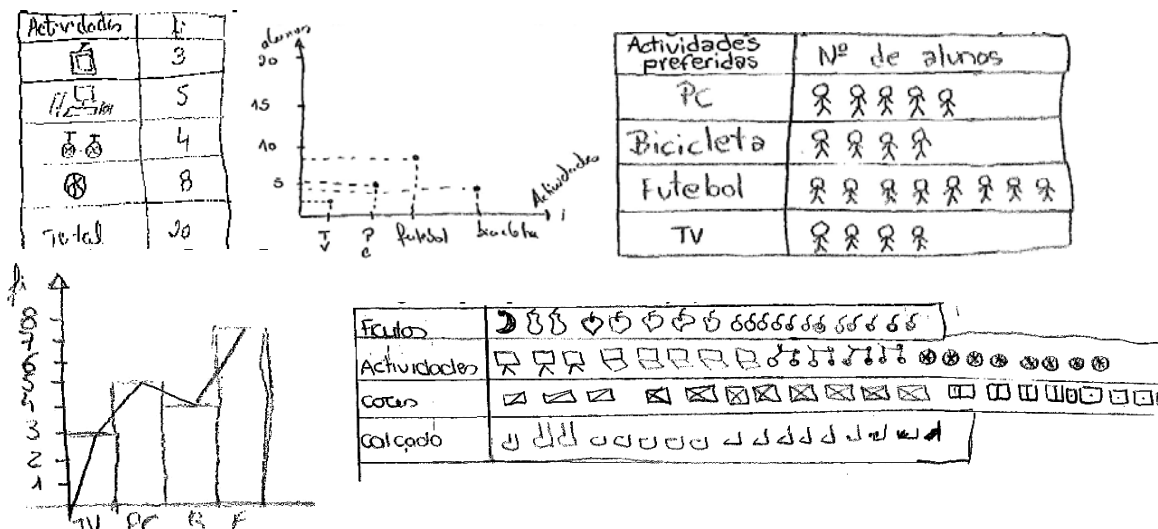 Actividades fi
3
5
4
8
Total 20
alunos
20
15
10
5
TV PC futebol bicicleta
Actividades
i
Actividades preferidas Nº de alunos
PC
Bicicleta
Futebol
TV
fi
5
3
2
1
TV PC B F
Frutos
Actividades
cores
calçado